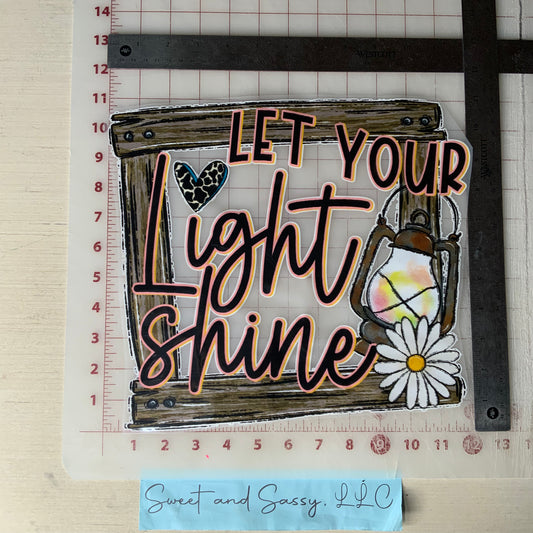 LET YOUR
Light
shine
WESTCOTT
WESTCOTT
14
13
12
11
10
9
8
7
6
5
4
3
2
1
1 2 3 4 5 6 7 8 9 10 11 12 13
Sweet and Sassy, LLC